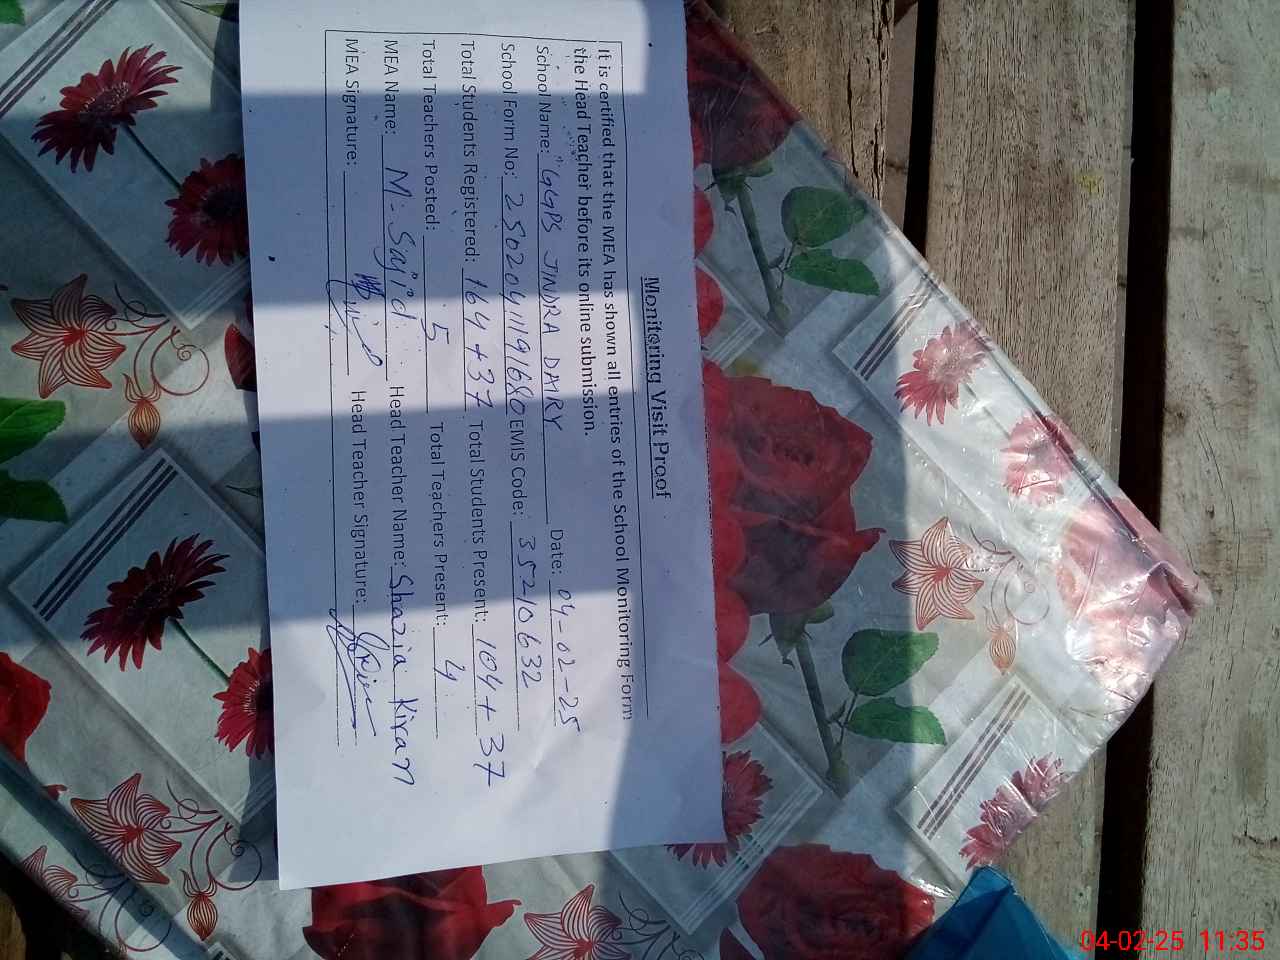 Monitoring Visit Proof
It is certified that the MEA has shown all entries of the School Monitoring Form
the Head Teacher before its online submission.
School Name: GGPS JINDRA DAIRY Date: 04-02-25
School Form No: 25020411191680 EMIS Code: 35210632
Total Students Registered: 164 + 37 Total Students Present: 104 + 37
Total Teachers Posted: 5 Total Teachers Present: 4
MEA Name: M. Sajid Head Teacher Name: Shazia Kiran
MEA Signature: Head Teacher Signature:
04-02-25 11:35